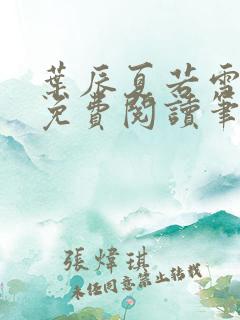 葉辰夏若雪
免費閱讀筆
張煒琪
未經同意禁止轉載